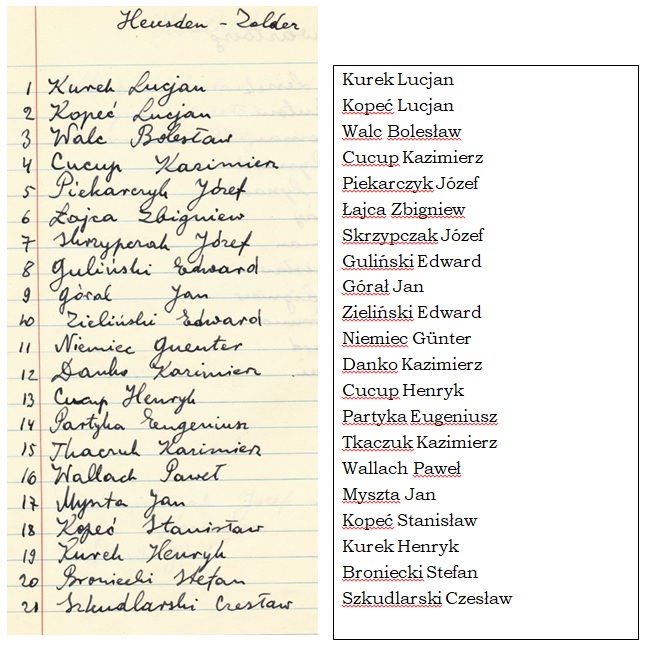 Heusden - Zolder
1 Kurek Lucjan
2 Kopeć Lucjan
3 Walc Bolesław
4 Cucup Kazimierz
5 Piekarczyk Józef
6 Łajca Zbigniew
7 Skrzypczak Józef
8 Guliński Edward
9 Góral Jan
10 Zieliński Edward
11 Niemiec Guenter
12 Danko Kazimierz
13 Cucup Henryk
14 Partyka Eugeniusz
15 Tkaczuk Kazimierz
16 Wallach Paweł
17 Myszta Jan
18 Kopeć Stanisław
19 Kurek Henryk
20 Broniecki Stefan
21 Szkudlarski Czesław
Kurek Lucjan
Kopeć Lucjan
Walc Bolesław
Cucup Kazimierz
Piekarczyk Józef
Łajca Zbigniew
Skrzypczak Józef
Guliński Edward
Górał Jan
Zieliński Edward
Niemiec Günter
Danko Kazimierz
Cucup Henryk
Partyka Eugeniusz
Tkaczuk Kazimierz
Wallach Paweł
Myszta Jan
Kopeć Stanisław
Kurek Henryk
Broniecki Stefan
Szkudlarski Czesław